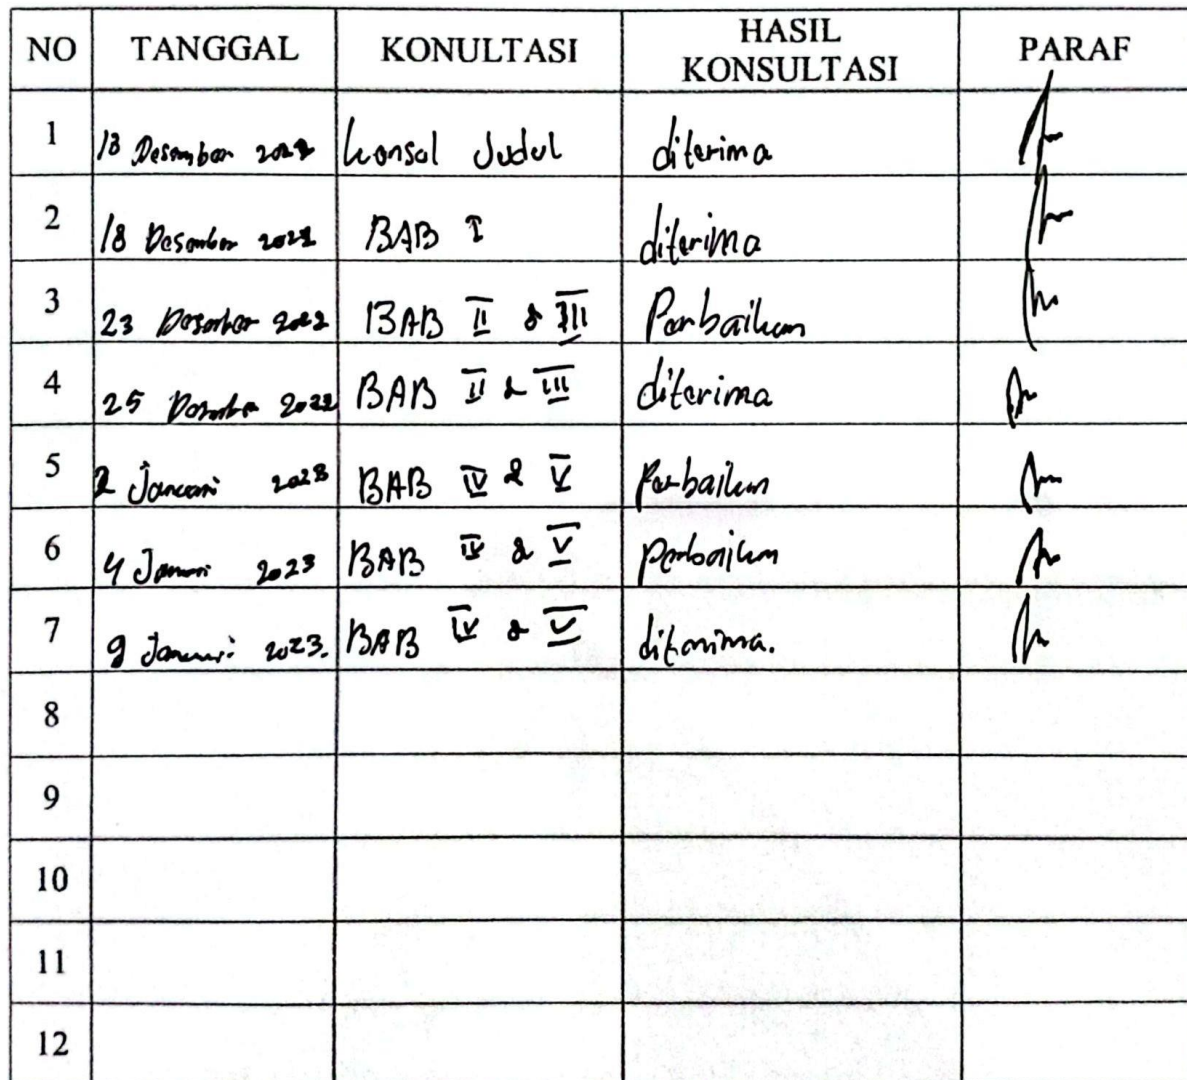 NO TANGGAL KONULTASI HASIL KONSULTASI PARAF
1 13 Desember 2022 konsul Judul diterima
2 18 Desember 2022 BAB I diterima
3 23 Desember 2022 BAB II & III Perbaikan
4 25 Desember 2022 BAB II & III diterima
5 2 Januari 2023 BAB IV & V Perbaikan
6 4 Januari 2023 BAB IV & V perbaikan
7 9 Januari 2023. BAB IV & V diterima.
8
9
10
11
12